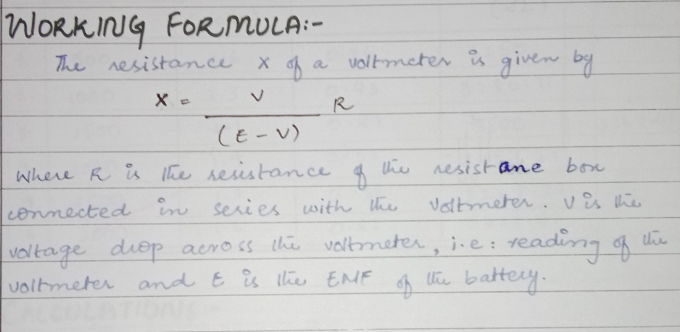 WORKING FORMULA:-
The resistance X of a voltmeter is given by
X = V
R
(E - V)
Where R is the resistance of the resistane box
connected in series with the voltmeter. V is the
voltage drop across the voltmeter, i.e: reading of the
voltmeter and E is the EMF of the battery.